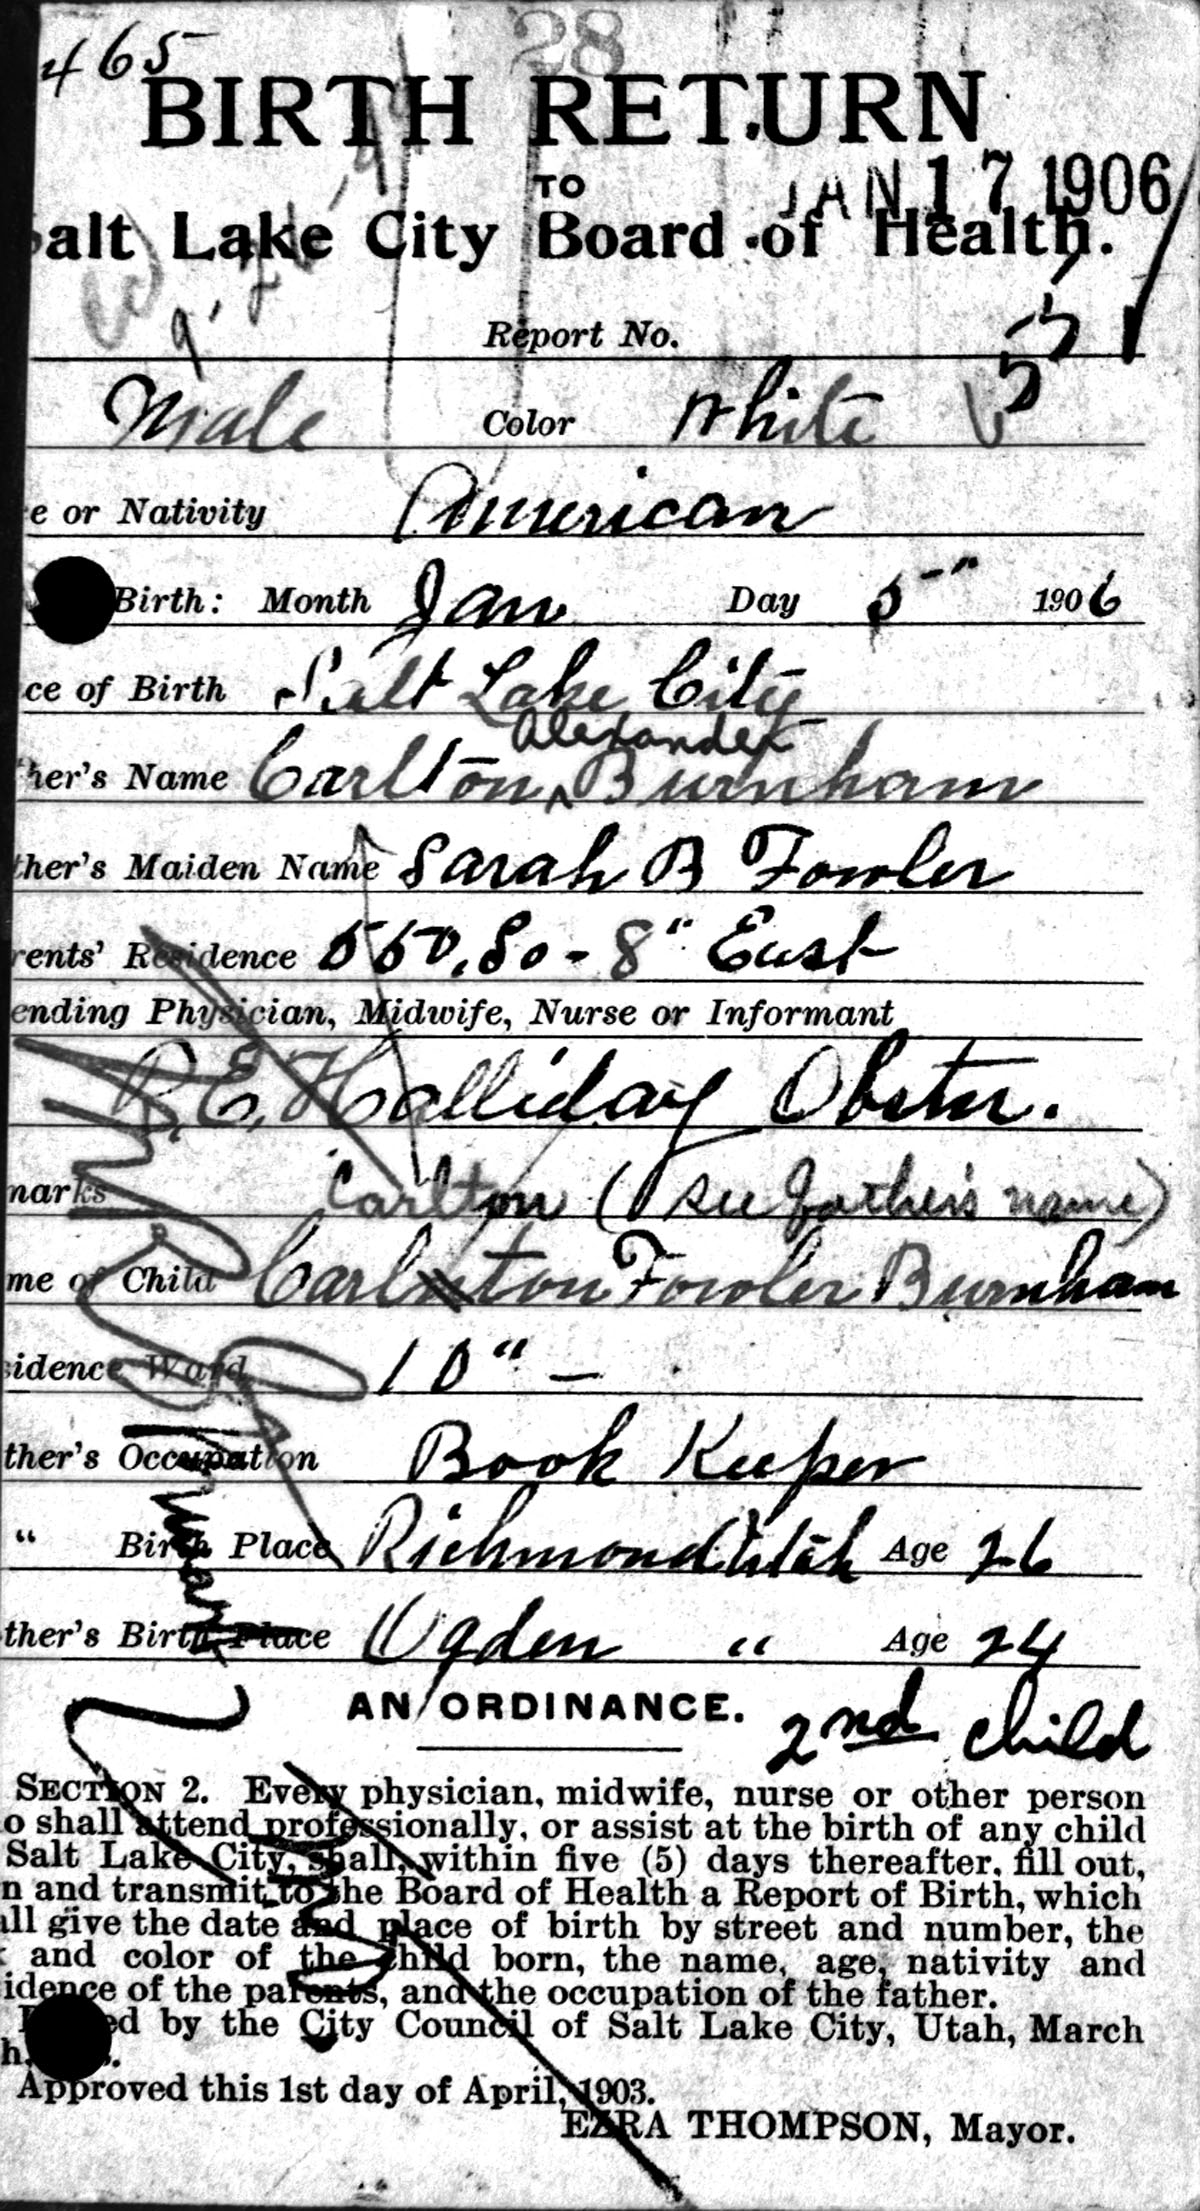 465
28
BIRTH RETURN
TO
JAN 17 1906
alt Lake City Board of Health.
Report No.
Male Color White
e or Nativity American
Birth: Month Jan Day 5" 1906
ce of Birth Salt Lake City
Alexander
her's Name Carlton ^ Burnham
ther's Maiden Name Sarah B Fowler
rents' Residence 550, So - 8" East
ending Physician, Midwife, Nurse or Informant
E. Halliday Obster.
marks Carlton (see father's name)
me of Child Carlton Fowler Burnham
sidence Ward 10" -
ther's Occupation Book Keeper
" Birth Place Richmond Utah Age 26
ther's Birth Place Ogden " Age 24
AN ORDINANCE.
2nd child
SECTION 2. Every physician, midwife, nurse or other person
o shall attend professionally, or assist at the birth of any child
Salt Lake City, shall, within five (5) days thereafter, fill out,
n and transmit to the Board of Health a Report of Birth, which
all give the date and place of birth by street and number, the
and color of the child born, the name, age, nativity and
idence of the parents, and the occupation of the father.
ed by the City Council of Salt Lake City, Utah, March
h,
Approved this 1st day of April, 1903.
EZRA THOMPSON, Mayor.